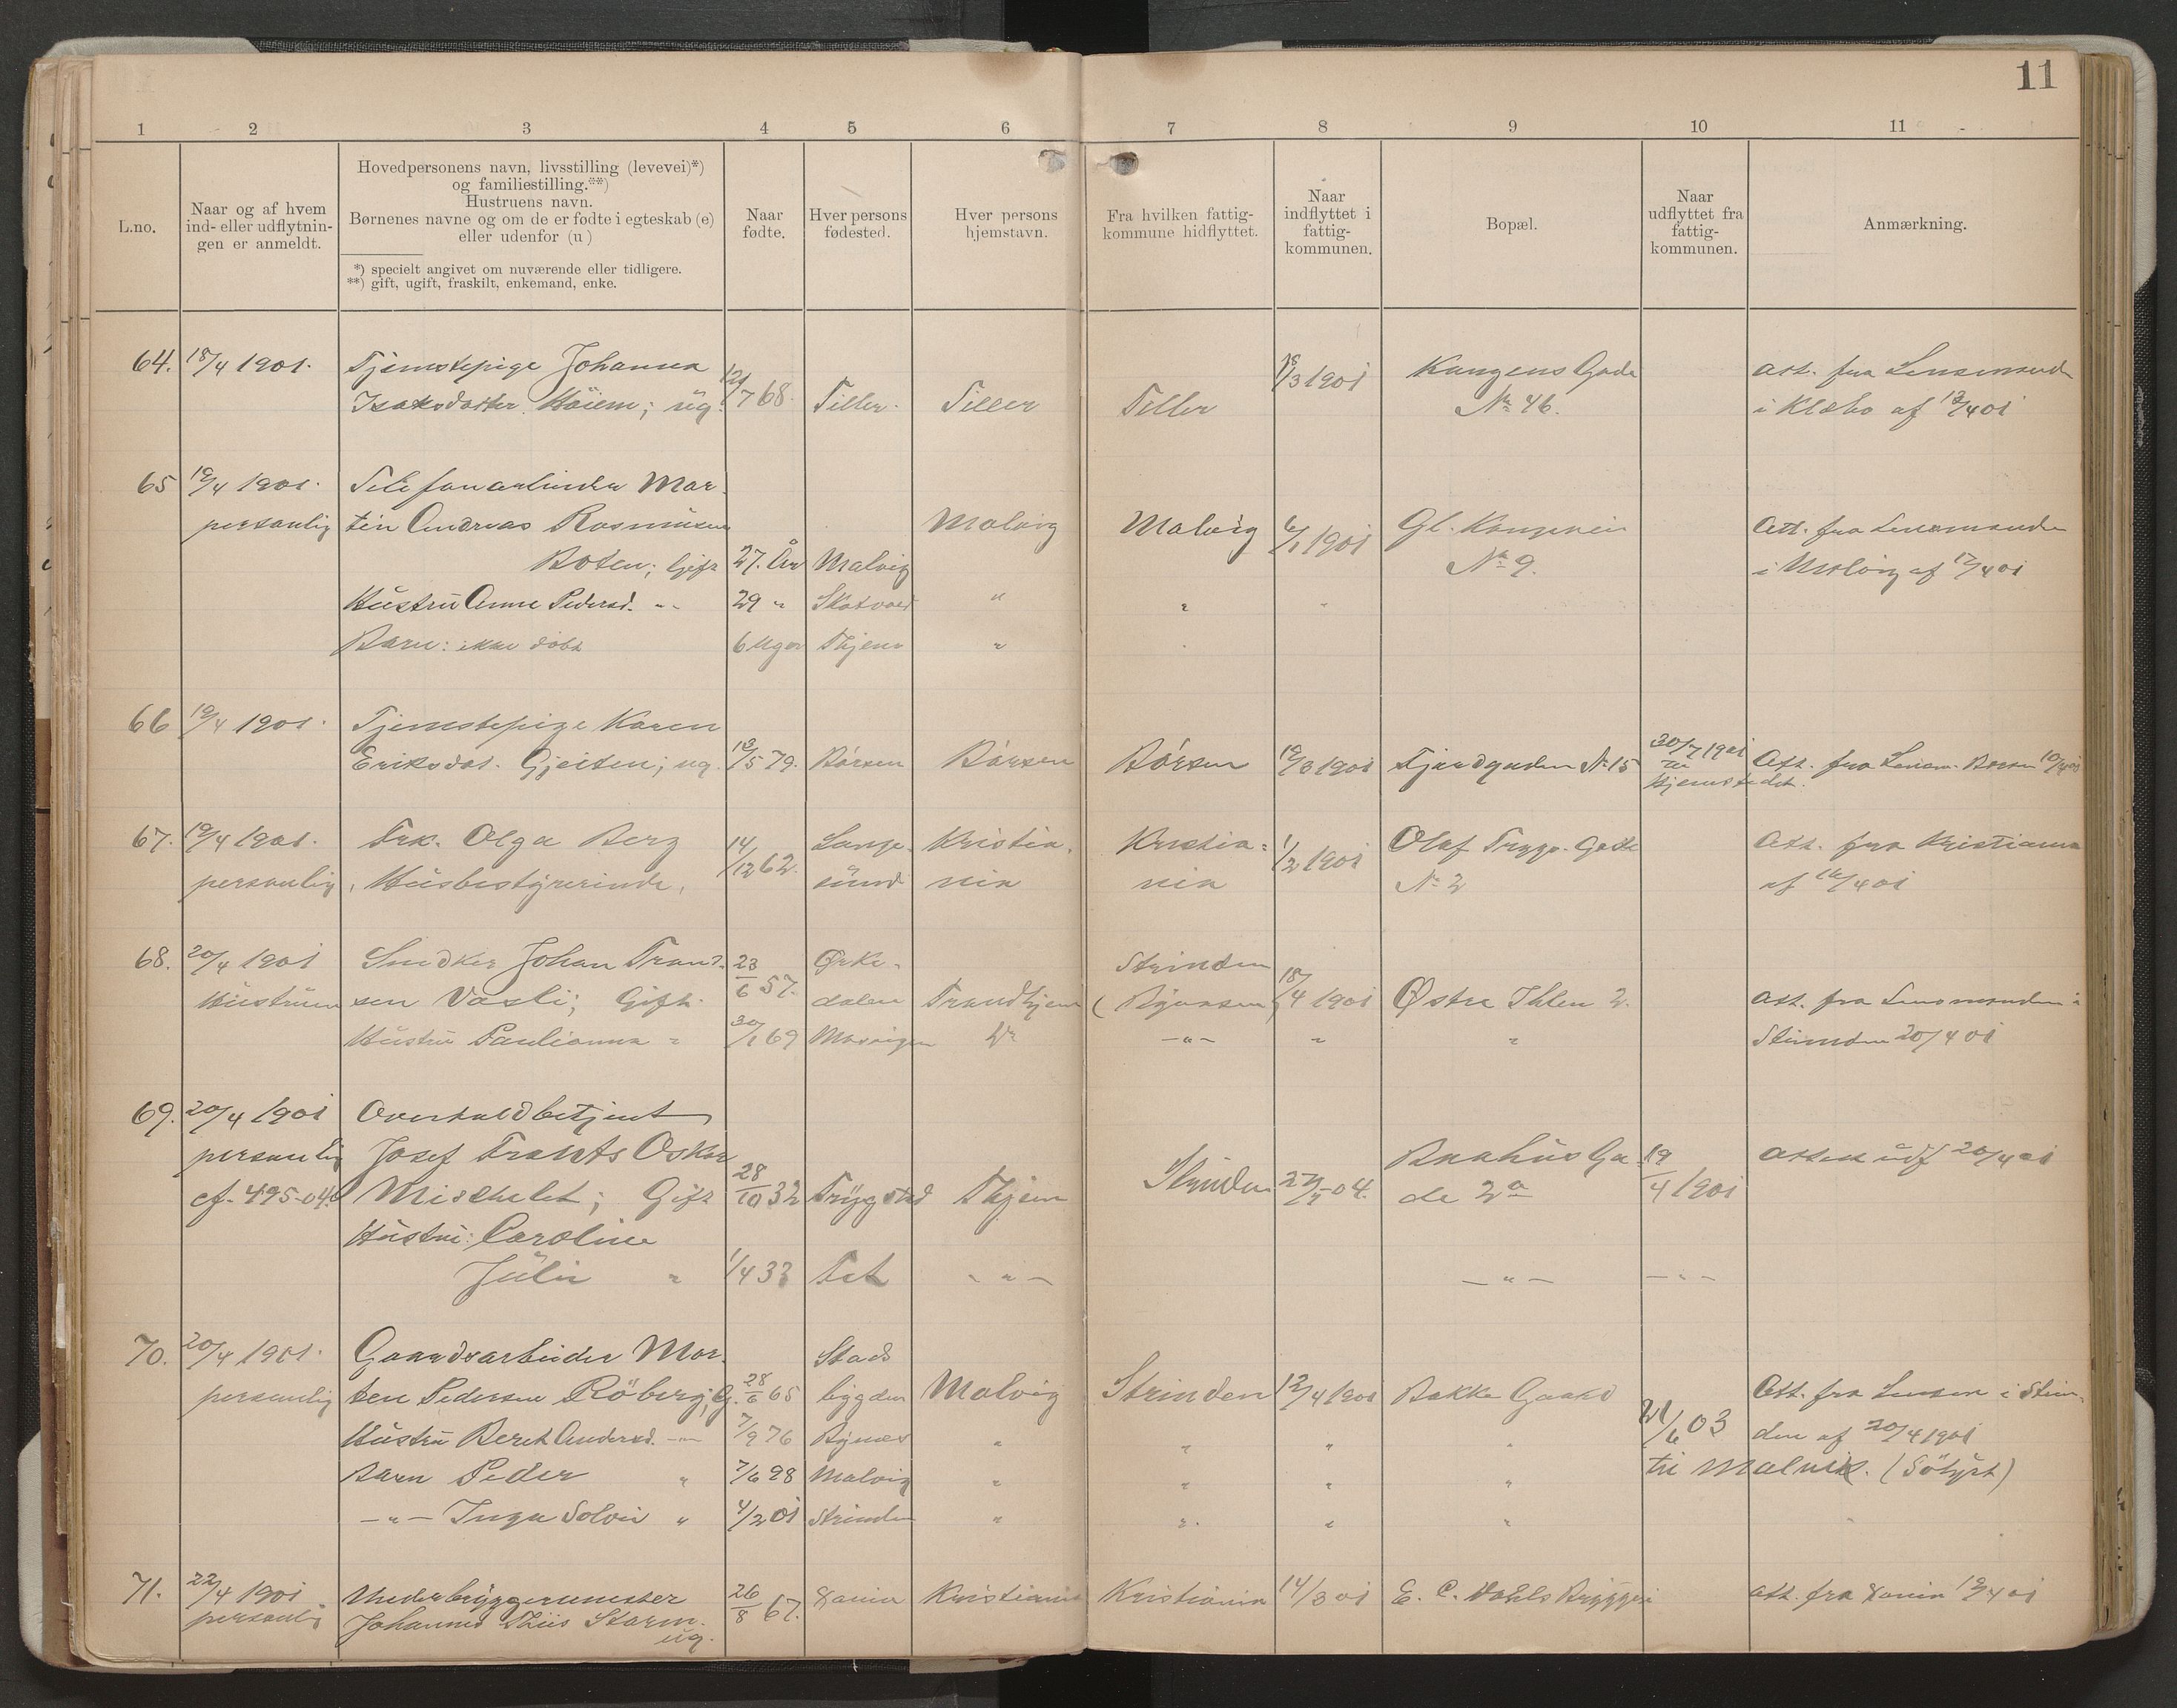 11
1 2 3 4 5 6 7 8 9 10 11
L.no.
Naar og af hvem
ind- eller udflytnin-
gen er anmeldt.
Hovedpersonens navn, livsstilling (levevei)*)
og familiestilling.**)
Hustruens navn.
Børnenes navne og om de er fødte i egteskab (e)
eller udenfor (u)
*) specielt angivet om nuværende eller tidligere.
**) gift, ugift, fraskilt, enkemand, enke.
Naar
fødte.
Hver persons
fødested.
Hver persons
hjemstavn.
Fra hvilken fattig-
kommune hidflyttet.
Naar
indflyttet i
fattig-
kommunen.
Bopæl.
Naar
udflyttet fra
fattig-
kommunen.
Anmærkning.
64. 18/4 1901. Tjenestepige Johanna Kongens Gade Att. fra Lensmand
Isaksdatter Höiem; ug. /7 68. Tiller. Tiller Tiller /3 1901 No 46. i Klæbo af /4 01
65 19/4 1901. Telefonarbeider Mar-
personlig tin Andreas Rasmusen Malvig Malvig 6/1 1901 Gl. Kongevei Att. fra Lensmanden
Boten; Gift 27. År Malvig No 9. i Malvig af 17/4 01
Hustru Anne Pedersd. " 29 " Skatval " " "
Barn: ikke döbt 6 Uger Thjem "
66 19/4 1901. Tjenestepige Karen
Eriksdat. Gjeiten; ug. /5 79. Börsen Börsen Börsen 19/3 1901 Fjordgaden No 15 30/7 1901 Att. fra Lensm. Börsen 10/4 01
til
Hjemstedet.
67. 19/4 1901. Frk. Olga Berg 14/12 62. Lange- Kristia- Kristia- 1/2 1901 Olaf Trygv. Gade Att. fra Kristiania
personlig, Husbestyrerinde, sund nia nia No 2 af 16/4 01
68. 20/4 1901 Snedker Johan Trond- 23/6 57. Orke- Strinden 18/4 1901
Hustruen sen Vasli; Gift. dalen Trondhjem (Bynesen) Østre Ihlen 2. Att. fra Lensmanden i
Hustru Paulianna " 30/1 69 Mosvigen Do -"- " " Strinden 20/4 01
69. 20/4 1901 Overtoldbetjent
personlig Josef Frants Oskar Baahus Ga- 19/4 1901 Attest udf 20/4 01
cf. 495-04. Mischelet; Gift 28/10 32 Trygstad Thjem Strinden -04. de 2a
Hustru: Caroline
Julie " 1/4 33 Fet - " - - " - - " -
70. 20/4 1901. Gaardsarbeider Mor- Stads
personlig ten Pedersen Röberg; G. 28/6 65 bygden Malvig Strinden 12/4 1901 Bakke Gaard Att. fra Lensm i Strin-
Hustru Beret Andersd. -"- 7/9 76 Bynes " " " " /6 03 den af 20/4 1901
Barn Peder " 7/6 98 Malvig " " " " til Malvik. (Sötyst)
-"- Inga Solvei " 4/2 01 Strinden " " " "
71. 22/4 1901 Underbryggermester 26/8 67. Xania Kristiania Kristiania 14/3 01 E. C. Dahls Bryggeri att. fra Xania 19/4 01
personlig Johannes Thiis Storm.
ug.